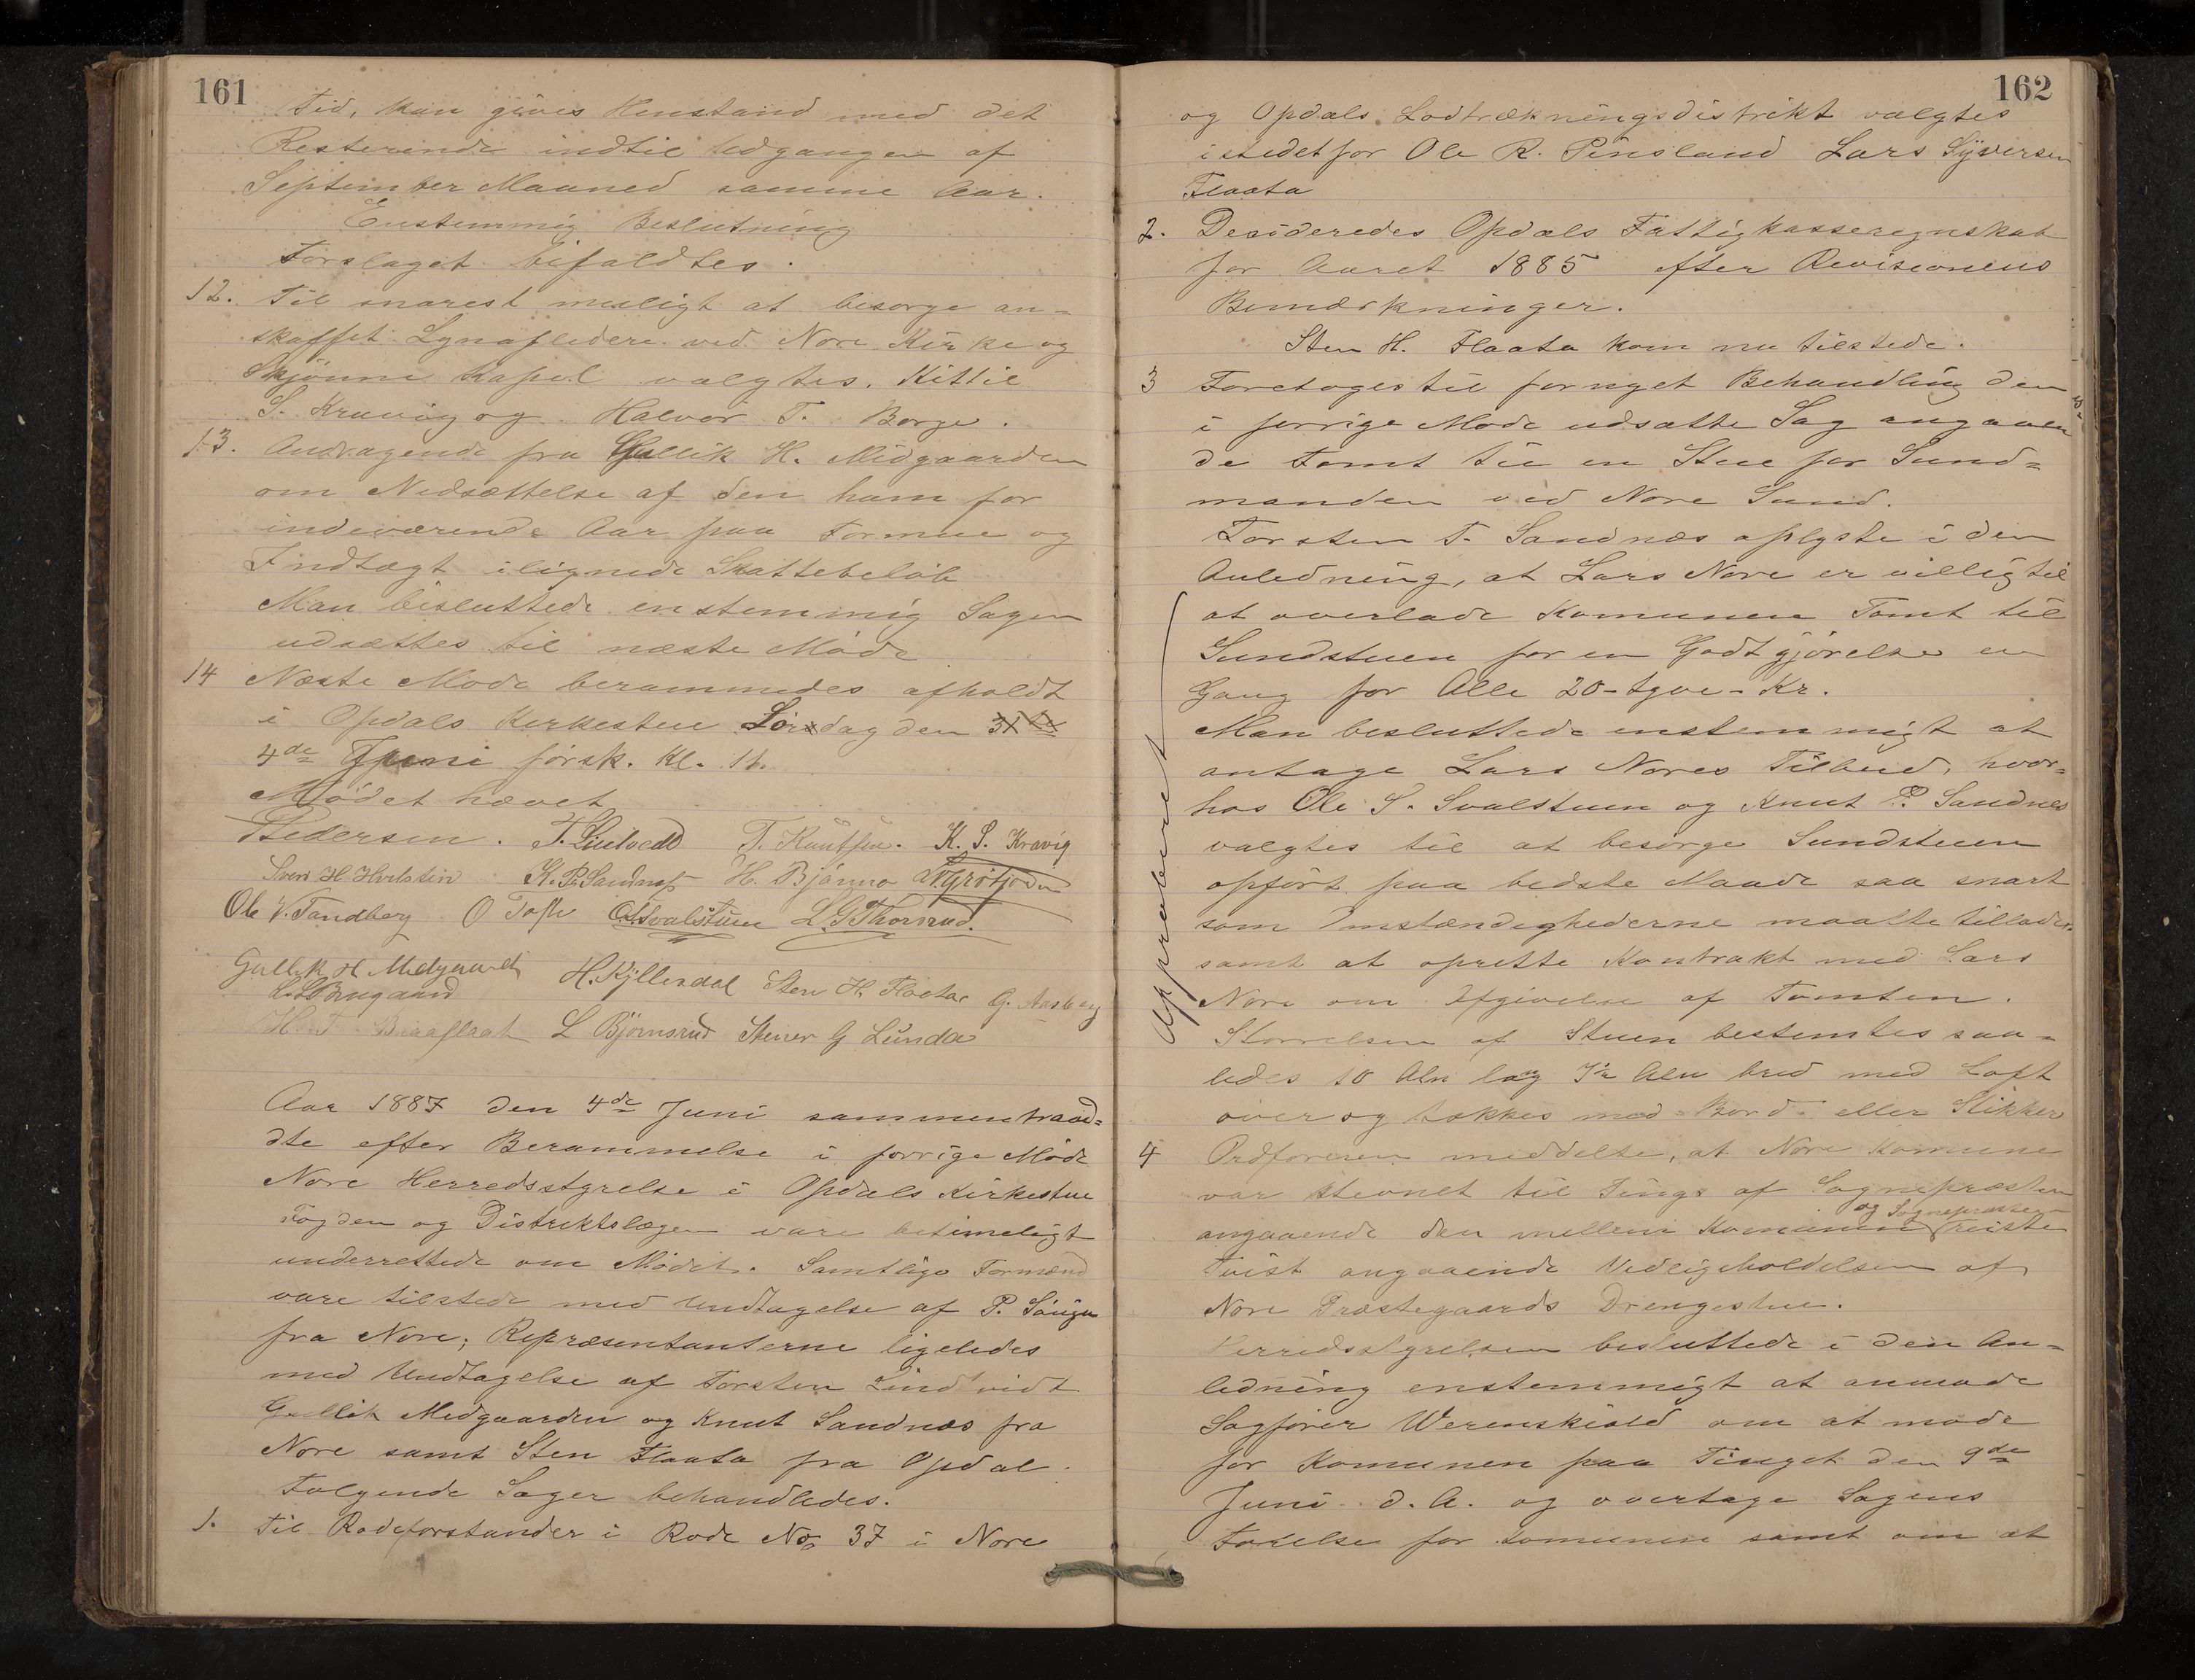 161
Tid, kan gives Henstand med det
Resterende indtil Udgangen af
September Maaned samme Aar.
Enstemmig Beslutning
Forslaget bifaldtes.
12. Til snarest muligt at besørge an=
skaffet Lynafledere ved Nore Kirke og
Skjønne Kapel valgtes. Kittil
S. Kravig og Halvor T. Borge.
13. Andragende fra Gullik H. Midgaarden
om Nedsættelse af den ham for
indeværende Aar paa Formue og
Indtægt ilignede Skattebeløb
Man besluttede enstemmig Sagen
udsættes til næste Møde
14 Næste Møde berammedes afholdt
i Opdals Kirkestue Lørdag den
4de Juni førstk. Kl. 11.
Mødet hævet
Pedersen. T. Lindvedt T. Knutsen. K. S. Kravig
Sven H. Hvilstin K. P. Sandnes H. Bjønno
Ole V. Tandberg O Tofte O.S. Svalstuen L. G. Thorsrud.
Gullik H Midgaard H. Kyllesdal Sten H. Flaata G. Aasberg
H. T. L Bjørnsrud Stener G Lunda
Aar 1887 den 4de Juni sammentraad=
dte efter Berammelse i forrige Møde
Nore Herredsstyrelse i Opdals Kirkestue
Fogden og Distriktslægen vare betimeligt
underrettede om Mødet. Samtlige Formænd
vare tilstede med Undtagelse af P. Søugn
fra Nore; Repræsentanterne ligeledes
med Undtagelse af Torsten Lindtvidt
Gullik Midgaarden og Knut Sandnæs fra
Nore samt Sten Flaata fra Opdal.
Følgende Sager behandledes.
1. Til Rodeforstander i Rode No 37 i Nore
162
og Opdals Lodtrækningsdistrikt valgtes
istedetfor Ole R. Pinsland Lars Syversen
Flaata
2. Desideredes Opdals Fattigkasseregnskab
for Aaret 1885 efter Revisionens
Bemærkninger.
Sten H. Flaata kom nu tilstede.
3 Foretoges til fornyet Behandling den
i forrige Møde udsatte Sag angaaen
de Tomt til en Stue for Sund=
manden ved Nore Sund.
Torsten T. Sandnæs oplyste i den
Anledning, at Lars Nore er villig til
at overlade Komunen Tomt til
Sundstuen for en Godtgjørelse en
Gang for Alle 20-tyve-Kr.
Man besluttede enstemmigt at
antage Lars Nores Tilbud, hvor=
hos Ole S. Svalstuen og Knut P. Sandnes
valgtes til at besørge Sundstuen
opført paa bedste Maade saa snart
som Omstændighederne maatte tillade,
samt at oprette Kontrakt med Lars
Nore om Afgivelse af Tomten.
Størrelsen af Stuen bestemtes saa=
ledes 10 Alen lang 7½ Alen bred med Loft
over og tækkes med Bord- eller Stikker
Approberet
4 Ordføreren meddelte, at Nore Komune
var stevnet til Tings af Sognepræsten
og Sognepræsten
angaaende den mellem Komunen reiste
Tvist angaaende Vedligeholdelsen af
Nore Præstegaards Drengestue.
Herredsstyrelsen besluttede i den An=
ledning enstemmigt at anmode
Sagfører Werenskiold om at møde
for Komunen paa Tinget den 9de
Juni d. A. og overtage Sagens
Førelse for Komunen samt om at